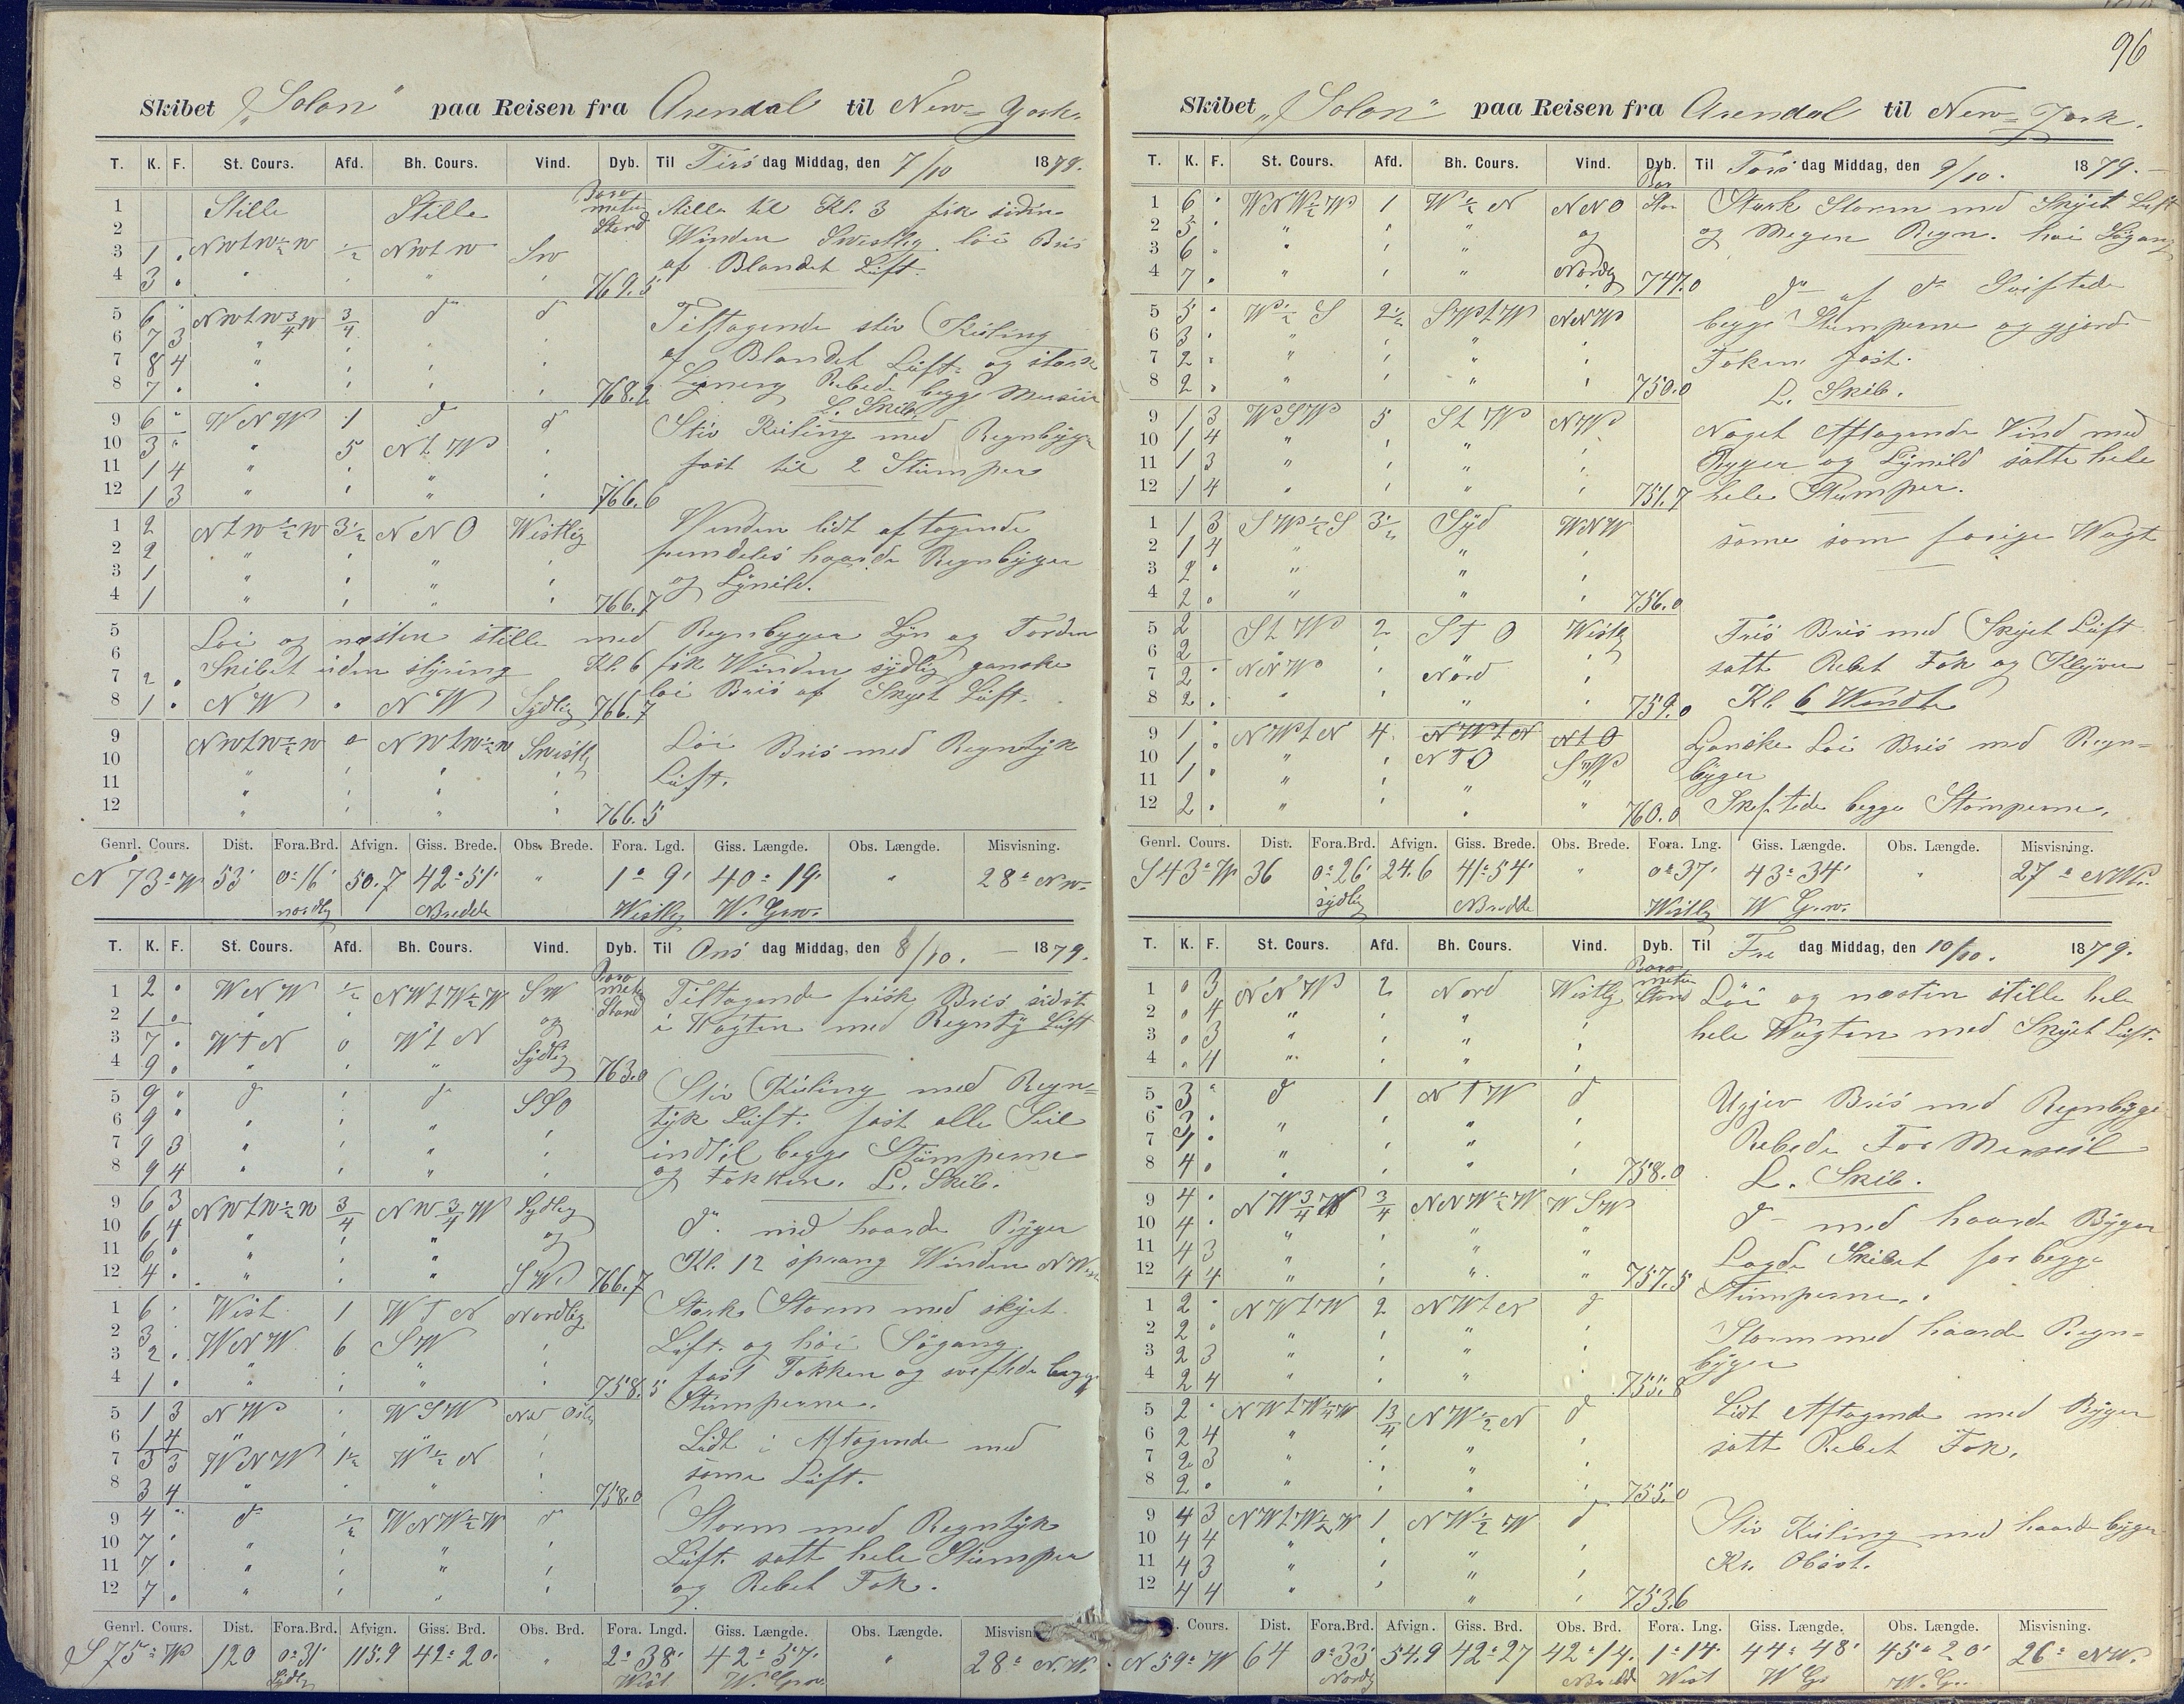 96
Skibet „Solon" paa Reisen fra Arendal til New-York.
T. K. F. St. Cours. Afd. Bh. Cours. Vind. Dyb. Til Tirs dag Middag, den 7/10 1879.
Barometer Stand
1 Stille Stille Stille til Kl. 3 fik siden
2 Winden Swestlig löi Bris
3 1 . NWtW½W ½ NWtW SW af Blandet Luft.
4 3 . " " " " 769.5
5 6 " NWtW¾W ¾ do do Tiltagende stiv Kuling
6 7 3 " " " " af Blandet Luft og stærk
7 8 4 " " " " Lynning Rebede begge Mersseil
8 7 . " " " " 768.2 L. Skib.
9 6 " WNW 1 do do Stiv Kuling med Regnbyger
10 3 " " 5 NtW " fast til 2 Stumper
11 1 4 " " " "
12 1 3 " " " " 766.6
1 2 NtW½W 3½ NNO Westlig Winden lidt aftagende
2 2 " " " " fremdeles haarde Regnbyger
3 1 " " " " og Lynild.
4 1 " " " " 766.7
5 Löi og næsten stille med Regnbyger Lyn og Torden
6 Skibet uden styring Kl. 6 fik Winden sydlig ganske
7 2 . löi Bris af Skyet Luft.
8 1 . NW . NW Sydlig 766.7
9 NWtW½W 0 NWtW½W Swestlig Löi Bris med Regntyk
10 " " " " Luft.
11 " " " "
12 " " " " 766.5
Genrl. Cours. Dist. Fora.Brd. Afvign. Giss. Brede. Obs. Brede. Fora. Lgd. Giss. Længde. Obs. Længde. Misvisning.
N 73° W 53' 0° 16' 50.7 42° 51' " 1° 9' 40° 19' " 28° NW.
nordlig Bredde Westlig W. Grw.
T. K. F. St. Cours. Afd. Bh. Cours. Vind. Dyb. Til Ons dag Middag, den 8/10. — 1879.
Barometer Stand
1 2 . WNW ½ NWtW½W SW Tiltagende frisk Bris sidst
2 1 . " " " og i Vagten med Regntyk Luft
3 7 . WtN 0 WtN Sydlig
4 9 . " " " 763.0
5 9 " do " do SSO Stiv Kuling med Regn=
6 9 " " " " " tyk Luft. fast alle Seil
7 9 3 " " " " indtil begge Stumperne
8 9 4 " " " " og Fokken. L. Skib.
9 6 3 NWtW½W ¾ NW¾W Sydlig do. med haarde Byger
10 6 4 " " " og Kl. 12 sprang Winden NW
11 6 . " " "
12 4 . " " " SW 766.7
1 6 . West 1 WtN Nordlig Stærk Storm med skyet
2 3 . WNW 6 SW " Luft. og höi Sögang.
3 2 . " " " " fast Fokken og sviftede begge
4 1 . " " " " 758.5 Stumperne.
5 1 3 NW " WSW
6 1 4 " " " " Lidt i Aftagende med
7 3 3 WNW 1½ W½N " samme Luft.
8 3 4 " " " " 758.0
9 4 . do ½ WNW½W do Storm med Regntyk
10 7 . " " " " Luft. satte hele Stumper
11 7 . " " " " og Rebet Fok.
12 7 . " " " "
Genrl. Cours. Dist. Fora.Brd. Afvign. Giss. Brd. Obs. Brd. Fora. Lngd. Giss. Længde. Obs. Længde. Misvisn
S 75° W 120 0° 31' 115.9 42° 20' " 2° 38' 42° 57' " 28° N.W.
Sydlig West W. Grw.
Skibet „Solon" paa Reisen fra Arendal til New-York.
T. K. F. St. Cours. Afd. Bh. Cours. Vind. Dyb. Til Tors dag Middag, den 9/10. 1879. —
1 6 . WNW½W 1 W½N NNO Stærk Storm med Skyet Luft
2 5 . " " " og og Megen Regn. höi Sögang
3 6 . " " " Nordlig
4 7 . " " " 747.0
5 5 . W½S 2½ SWtW NNW do af do Sviftede
6 3 . " " " " begge Stumperne og gjorde
7 2 . " " " " Foken fast.
8 2 . " " " " 750.0 L. Skib.
9 1 3 WSW 5 StW NW Noget Aftagende Vind med
10 1 4 " " " " Byger og Lynild satte hele
11 1 3 " " " " hele Stumper.
12 1 4 " " " " 751.7
1 1 3 SW½S 3½ Syd WNW same som forige Wagt
2 1 4 " " "
3 2 . " " "
4 2 . " " " 756.0
5 2 StW 2 StO Westlig Fris Bris med Skyet Luft
6 2 satte Rebet Fok og Klyver
7 2 . NNW " Nord " Kl. 6 Wendte
8 2 . " " " " 759.0
9 1 . NWtN 4 NWtN NtO Ganske Löi Bris med Regn=
10 1 . " " NtO SW byger
11 1 . " " " "
12 2 . " " " " 760.0 Skiftede begge Stomperne.
Genrl. Cours. Dist. Fora.Brd. Afvign. Giss. Brede. Obs. Brede. Fora. Lng. Giss. Længde. Obs. Længde. Misvisning.
S 43° W 36 0° 26' 24.6 41° 54' " 0° 37' 43° 34' " 27° NW.
sydlig Bredde Westlig W Grw.
T. K. F. St. Cours. Afd. Bh. Cours. Vind. Dyb. Til Fre dag Middag, den 10/10. 1879.
Barometer Stand
1 0 3 NNW 2 Nord Westlig Löi og næsten stille hele
2 . 4 " " " " hele Wagten med Skyet Luft.
3 0 3 " " " "
4 . 4 " " " "
5 3 " do 1 NtW do Ujev Bris med Regnbyge
6 3 . " " " " Rebede For Mersseil
7 4 . " " " " L. Skib.
8 4 . " " " " 758.0
9 4 . NW¾W ¾ NNW½W WSW do med haarde Byger
10 4 . " " " " Lagde Skibet for begge
11 4 3 " " " " Stumperne.
12 4 4 " " " " 757.5
1 2 . NWtW 2 NWtN do Storm med haarde Regn=
2 2 . " " " " byger
3 2 3 " " " "
4 2 4 " " " " 755.8
5 2 . NWtW¼W 1¾ NW½N do Lidt Aftagende med Byger
6 2 4 " " " " satte Rebet Fok.
7 2 3 " " " "
8 2 . " " " " 755.0
9 4 3 NWtW½W 1 NW½W do Stiv Kuling med haarde byger
10 4 4 " " " " Kr. Obsvt.
11 4 3 " " " "
12 4 4 " " " " 753.6
Cours. Dist. Fora.Brd. Afvign. Giss. Brd. Obs. Brd. Fora. Lng. Giss. Længde. Obs. Længde. Misvisning.
N 59° W 64 0° 33' 54.9 42° 27 42° 14' 1° 14' 44° 48' 45° 20' 26° NW.
Nordlig Bredde West W Gr W. Gr.